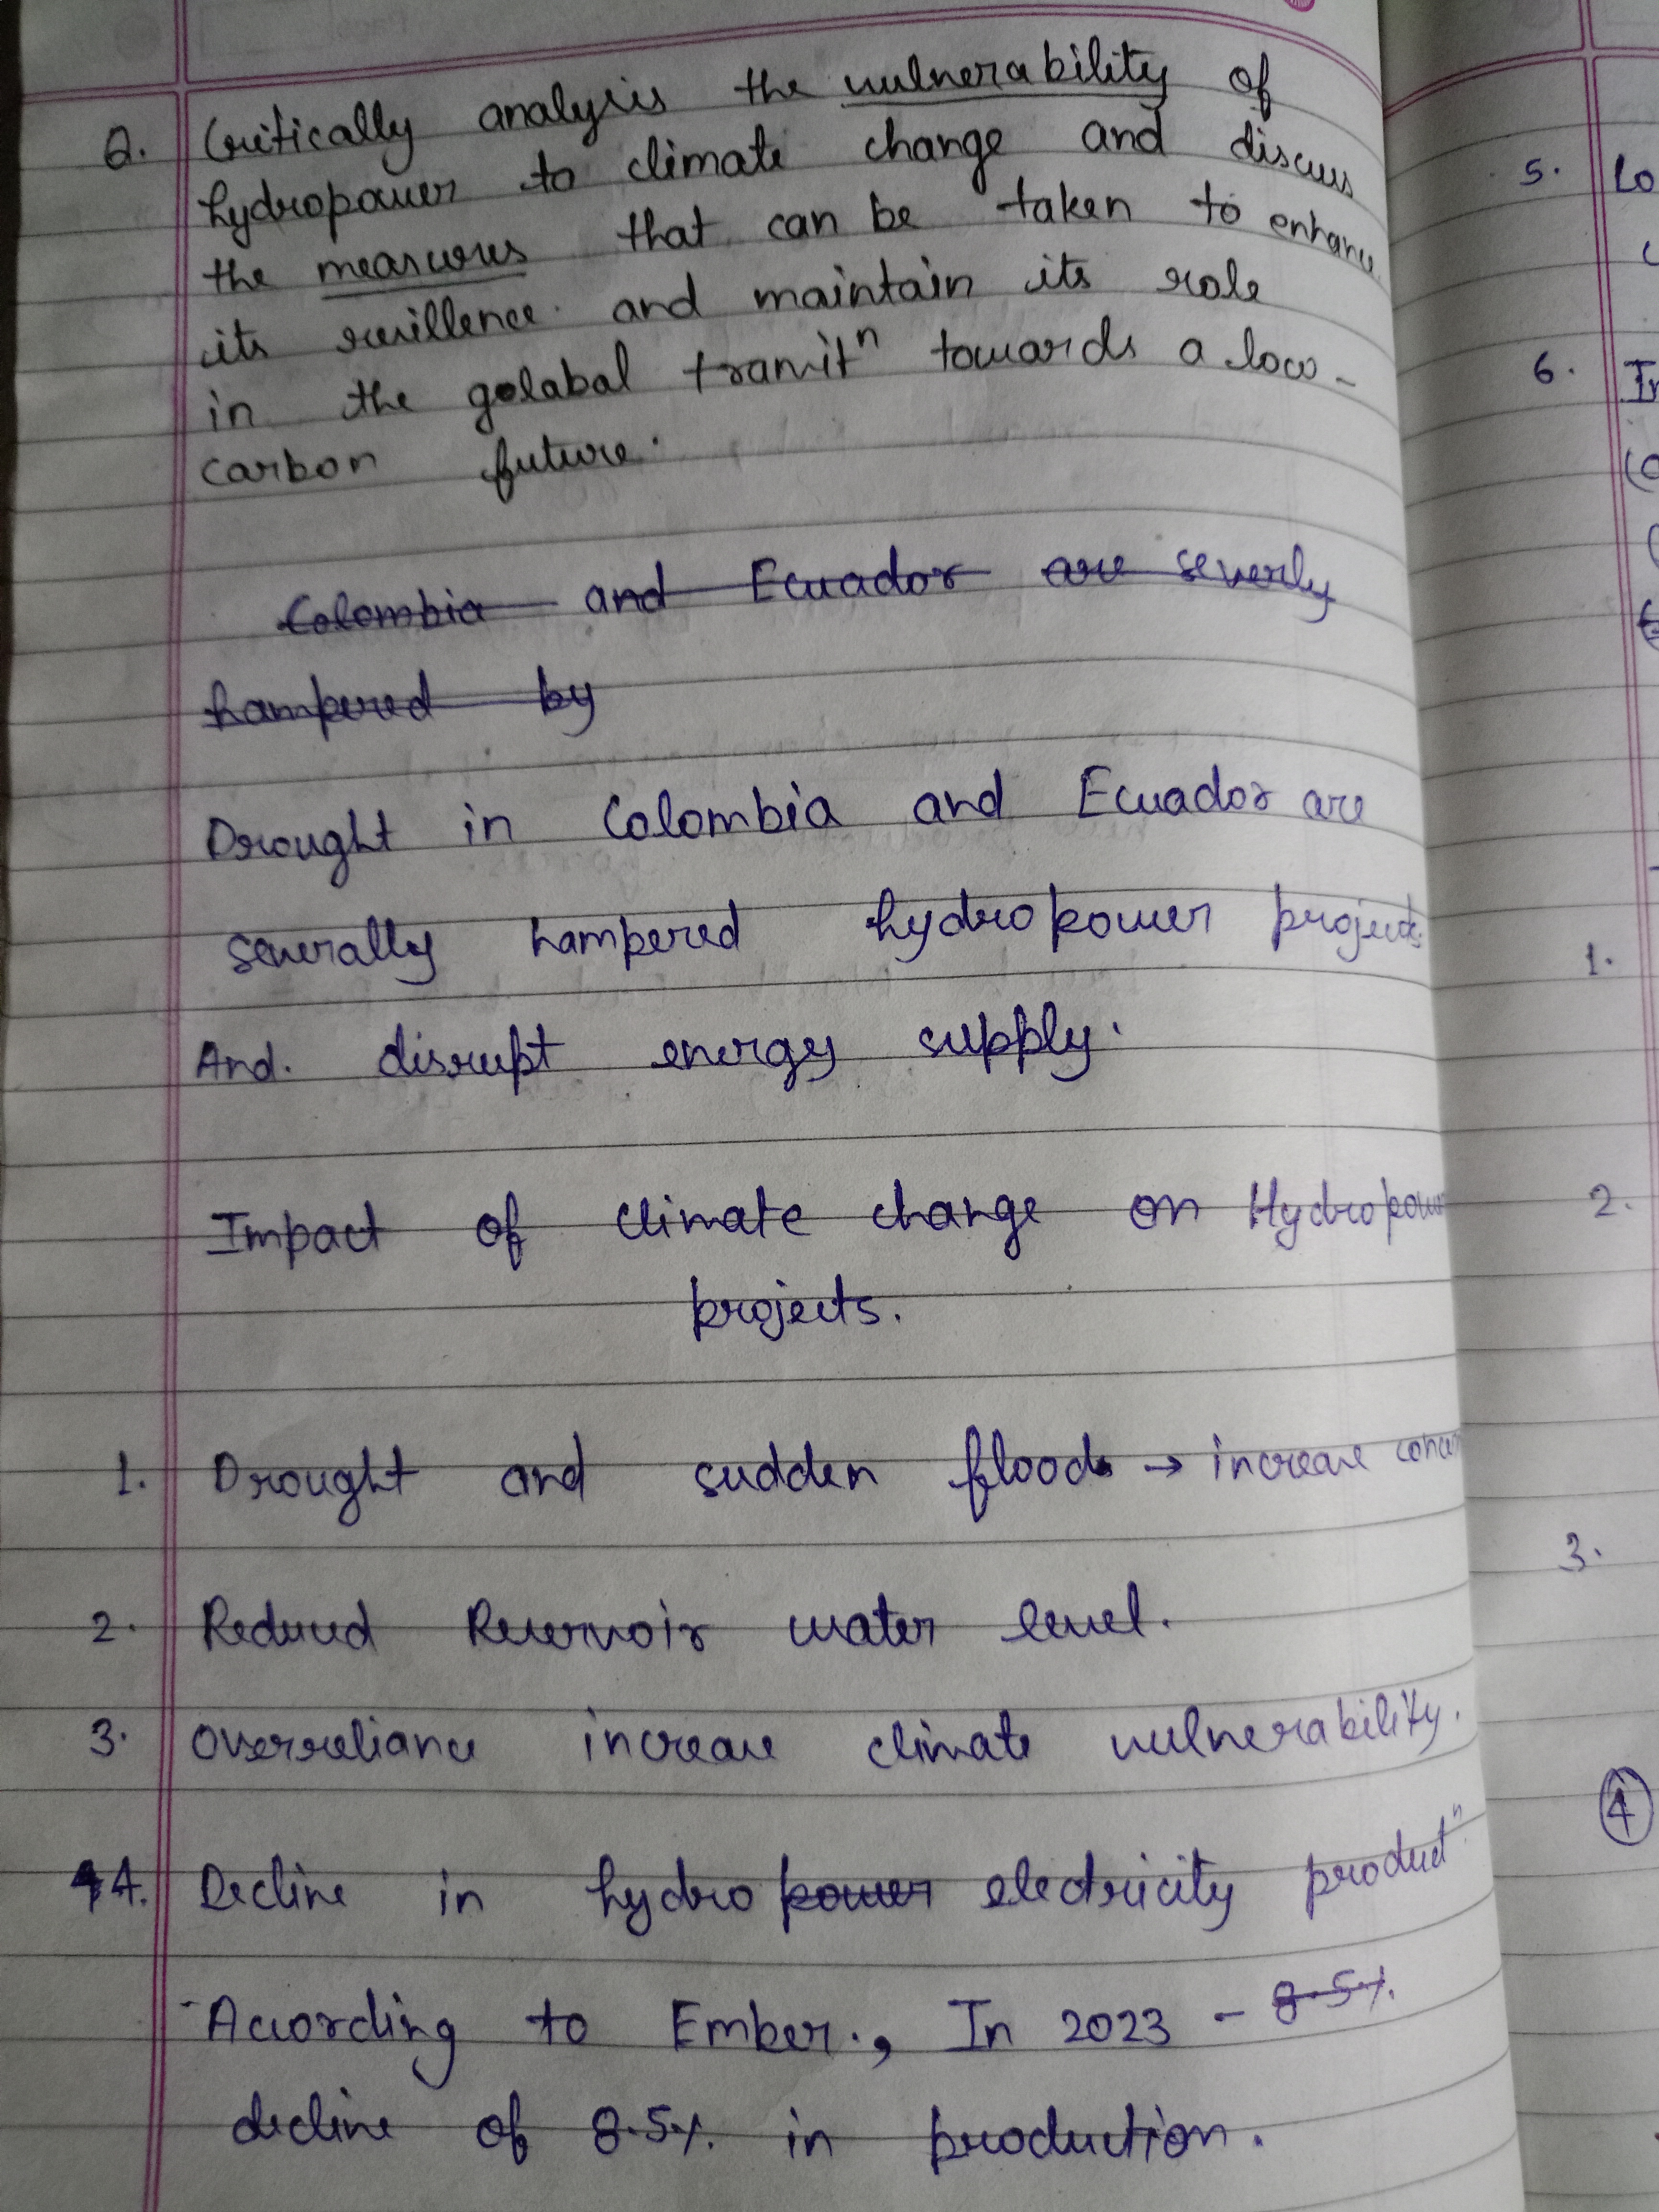 Q. Critically analysis the vulnerability of
hydropower to climate change and discuss
the measures that can be taken to enhance
its resillence. and maintain its role
in the golabal transitⁿ towards a low-
carbon future.
Colombia and Ecuador are severly
hampered by
Drought in Colombia and Ecuador are
severally hampered hydropower projects.
And. disrupt energy supply.
Impact of climate change on Hydropower
projects.
1. Drought and sudden floods → increase
2. Reduced Reservoir water level.
3. Overreliance increase climate vulnerability.
4. Decline in hydro power electricity productⁿ
- According to Ember., In 2023 - 8.5%.
decline of 8.5%. in production.
5. Lo
6. In
1.
2.
3.
4